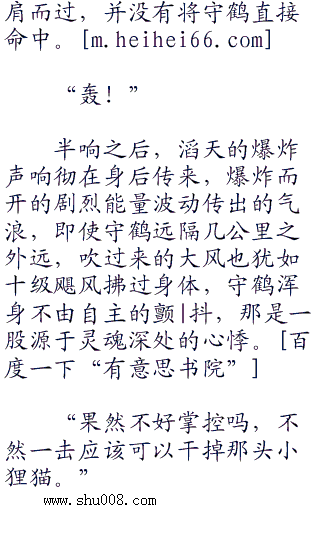 肩而过，并没有将守鹤直接
命中。[m.heihei66.com]
“轰！”
半响之后，滔天的爆炸
声响彻在身后传来，爆炸而
开的剧烈能量波动传出的气
浪，即使守鹤远隔几公里之
外远，吹过来的大风也犹如
十级飓风拂过身体，守鹤浑
身不由自主的颤|抖，那是一
股源于灵魂深处的心悸。[百
度一下“有意思书院”]
“果然不好掌控吗，不
然一击应该可以干掉那头小
狸猫。”
www.shu008.com